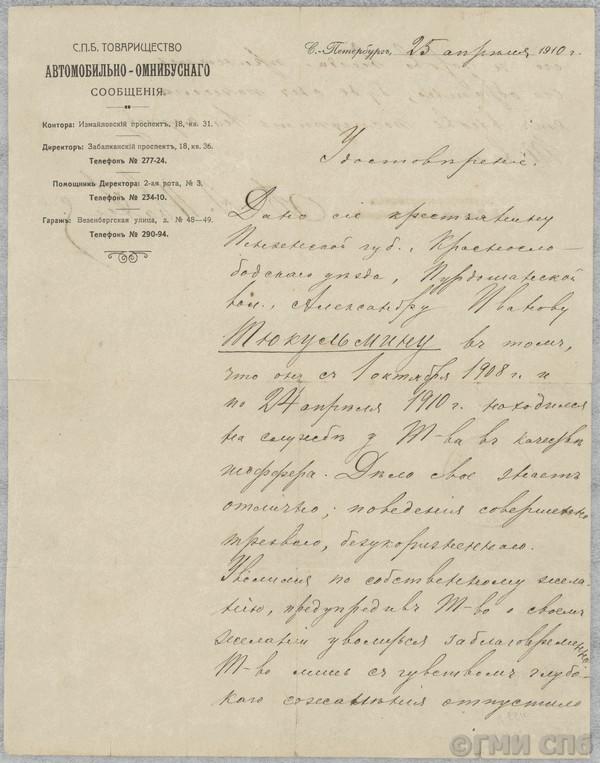 С.П.Б. ТОВАРИЩЕСТВО
АВТОМОБИЛЬНО-ОМНИБУСНАГО
СООБЩЕНІЯ.
Контора: Измайловскій проспектъ, 18, кв. 31.
Директоръ: Забалканскій проспектъ, 18, кв. 36.
Телефонъ № 277-24.
Помощникъ Директора: 2-ая рота, № 3.
Телефонъ № 234-10.
Гаражъ: Везенбергская улица, д. № 48—49.
Телефонъ № 290-94.
С.-Петербургъ, 25 апрѣля 1910 г.
Удостовѣреніе.
Дано сіе крестьянину
Пензенской губ., Красносло-
бодскаго уѣзда, Пурдошанской
вол., Александру Иванову
Тюкульмину въ томъ,
что онъ съ 1 октября 1908 г. и
по 24 апрѣля 1910 г. находился
на службѣ у Т-ва въ качествѣ
шоффера. Дѣло свое знаетъ
отлично; поведенія совершенно
трезваго, безукоризненнаго.
Уволился по собственному жела-
нію, предупредивъ Т-во о своемъ
желаніи уволиться заблаговременно
Т-во лишь съ чувствомъ глубо-
каго сожалѣнія отпустило
©ГМИ СПб